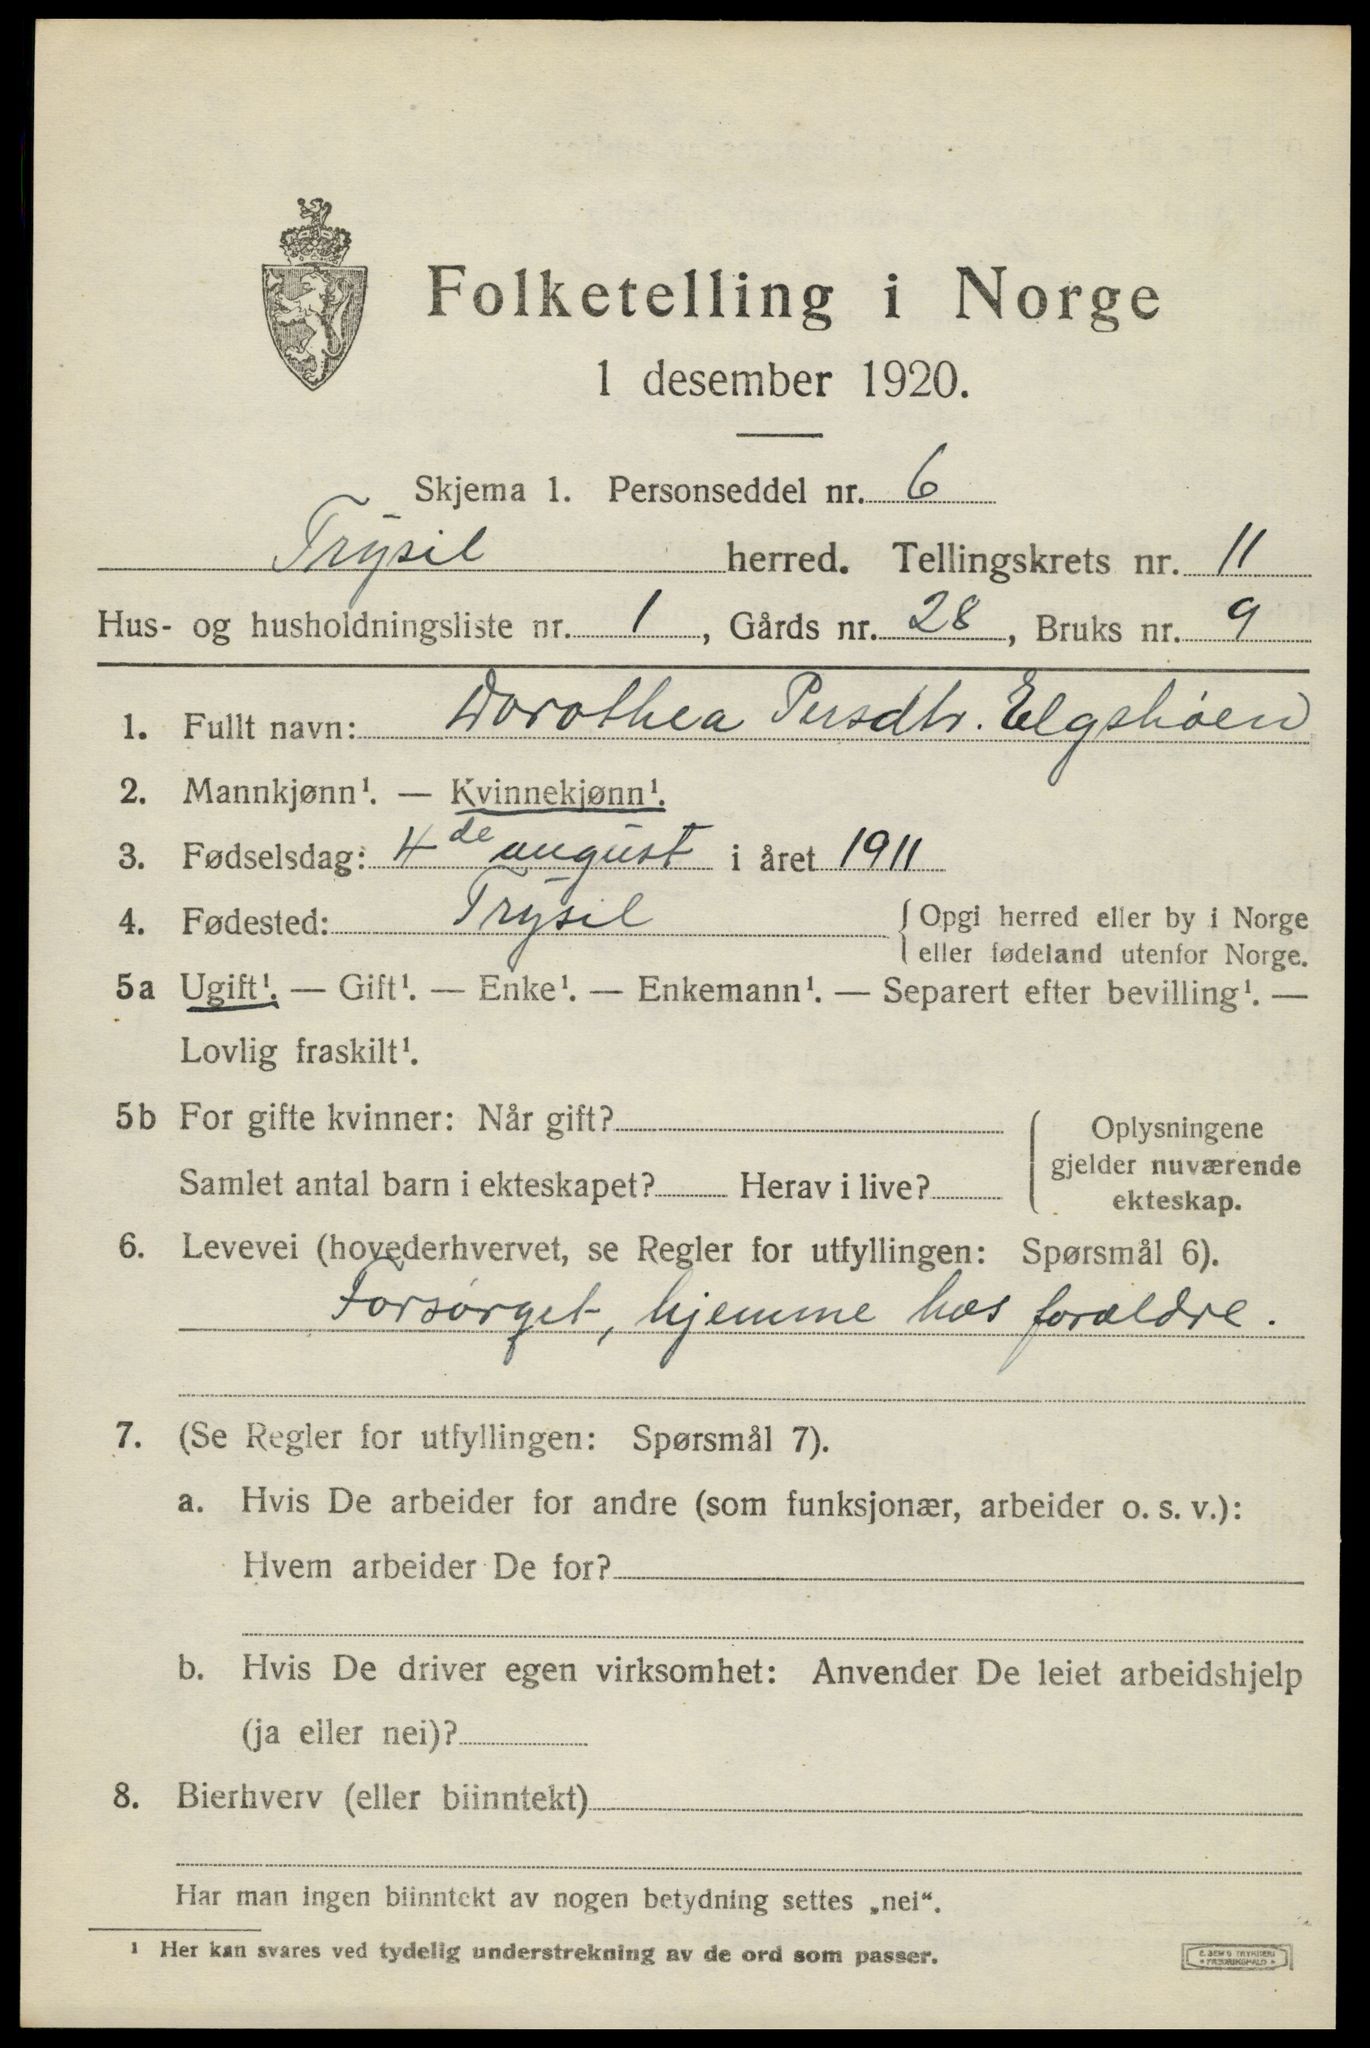 Folketelling i Norge
1 desember 1920.
Skjema 1. Personseddel nr. 6
Trysil herred. Tellingskrets nr. 11
Hus- og husholdningsliste nr. 1, Gårds nr. 28, Bruks nr. 9
1. Fullt navn: Dorothea Persdtr. Elgshøen
2. Mannkjønn¹. — Kvinnekjønn¹.
3. Fødselsdag: 4de august i året 1911
4. Fødested: Trysil { Opgi herred eller by i Norge
eller fødeland utenfor Norge.
5a Ugift¹. — Gift¹. — Enke¹. — Enkemann¹. — Separert efter bevilling¹. —
Lovlig fraskilt¹.
5b For gifte kvinner: Når gift?
Samlet antal barn i ekteskapet? Herav i live?
Oplysningene
gjelder nuværende
ekteskap.
6. Levevei (hovederhvervet, se Regler for utfyllingen: Spørsmål 6).
Forsørget, hjemme hos forældre.
7. (Se Regler for utfyllingen: Spørsmål 7).
a. Hvis De arbeider for andre (som funksjonær, arbeider o. s. v.):
Hvem arbeider De for?
b. Hvis De driver egen virksomhet: Anvender De leiet arbeidshjelp
(ja eller nei)?
8. Bierhverv (eller biinntekt)
Har man ingen biinntekt av nogen betydning settes „nei“.
¹ Her kan svares ved tydelig understrekning av de ord som passer.